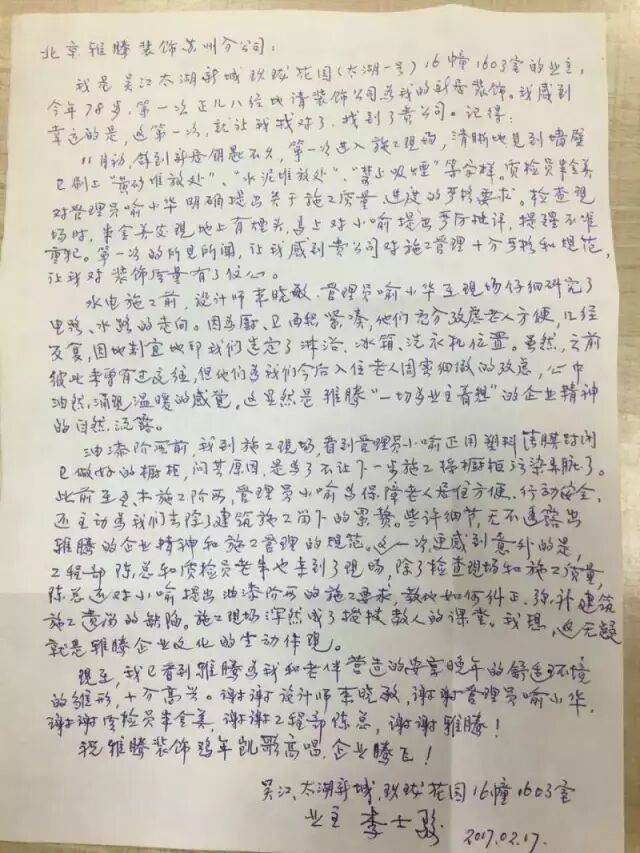 北京雅腾装饰苏州分公司:
我是吴江太湖新城玖珑花园(太湖一号)16幢1603室的业主,
今年78岁。第一次正儿八经地请装饰公司为我的新房装饰。我感到
幸运的是,这第一次,就让我找对了,找到了贵公司。记得:
11月初,拿到新房钥匙不久,第一次进入施工现场,清晰地见到墙壁
已刷上“黄砂堆放处”、“水泥堆放处”、“禁止吸烟”等字样。质检员朱金美
对管理员喻小华明确提出关于施工质量、进度的严格要求。检查现
场时,朱金美发现地上有烟头,马上对小喻提出严厉批评,提醒不准
重犯。第一次的所见所闻,让我感到贵公司对施工管理十分严格和规范,
让我对装饰质量有了信心。
水电施工前,设计师李晓敏、管理员喻小华在现场仔细研究了
电路、水路的走向。因为厨、卫面积紧凑,他们充分考虑老人方便,几经
反复,因地制宜地帮我们选定了淋浴、冰箱、洗衣机位置。虽然,之前
彼此未曾有过交往,但他们为我们今后入住老人因素细微的考虑,心中
油然涌现温暖的感觉。这显然是雅腾“一切为业主着想”的企业精神
的自然流露。
油漆阶段前,我到施工现场,看到管理员小喻正用塑料薄膜封闭
已做好的橱柜,问其原因,是为了不让下一步施工将橱柜污染弄脏了。
此前在土木施工阶段,管理员小喻为保障老人居住方便、行动安全,
还主动为我们去除了建筑施工留下的累赘。些许细节,无不透露出
雅腾的企业精神和施工管理的规范。这一次更感到意外的是,
工程部陈总和质检员老朱也来到了现场,除了检查现场和施工质量,
陈总还对小喻提出油漆阶段的施工要求,教他如何纠正、弥补建筑
施工遗留的缺陷。施工现场浑然成了授技教人的课堂。我想,这无疑
就是雅腾企业文化的生动体现。
现在,我已看到雅腾为我和老伴营造的安享晚年的舒适环境
的雏形,十分高兴。谢谢设计师李晓敏,谢谢管理员喻小华,
谢谢质检员朱金美,谢谢工程部陈总,谢谢雅腾!
祝雅腾装饰鸡年凯歌高唱,企业腾飞!
吴江、太湖新城、玖珑花园16幢1603室
业主 李士
2017.02.17.